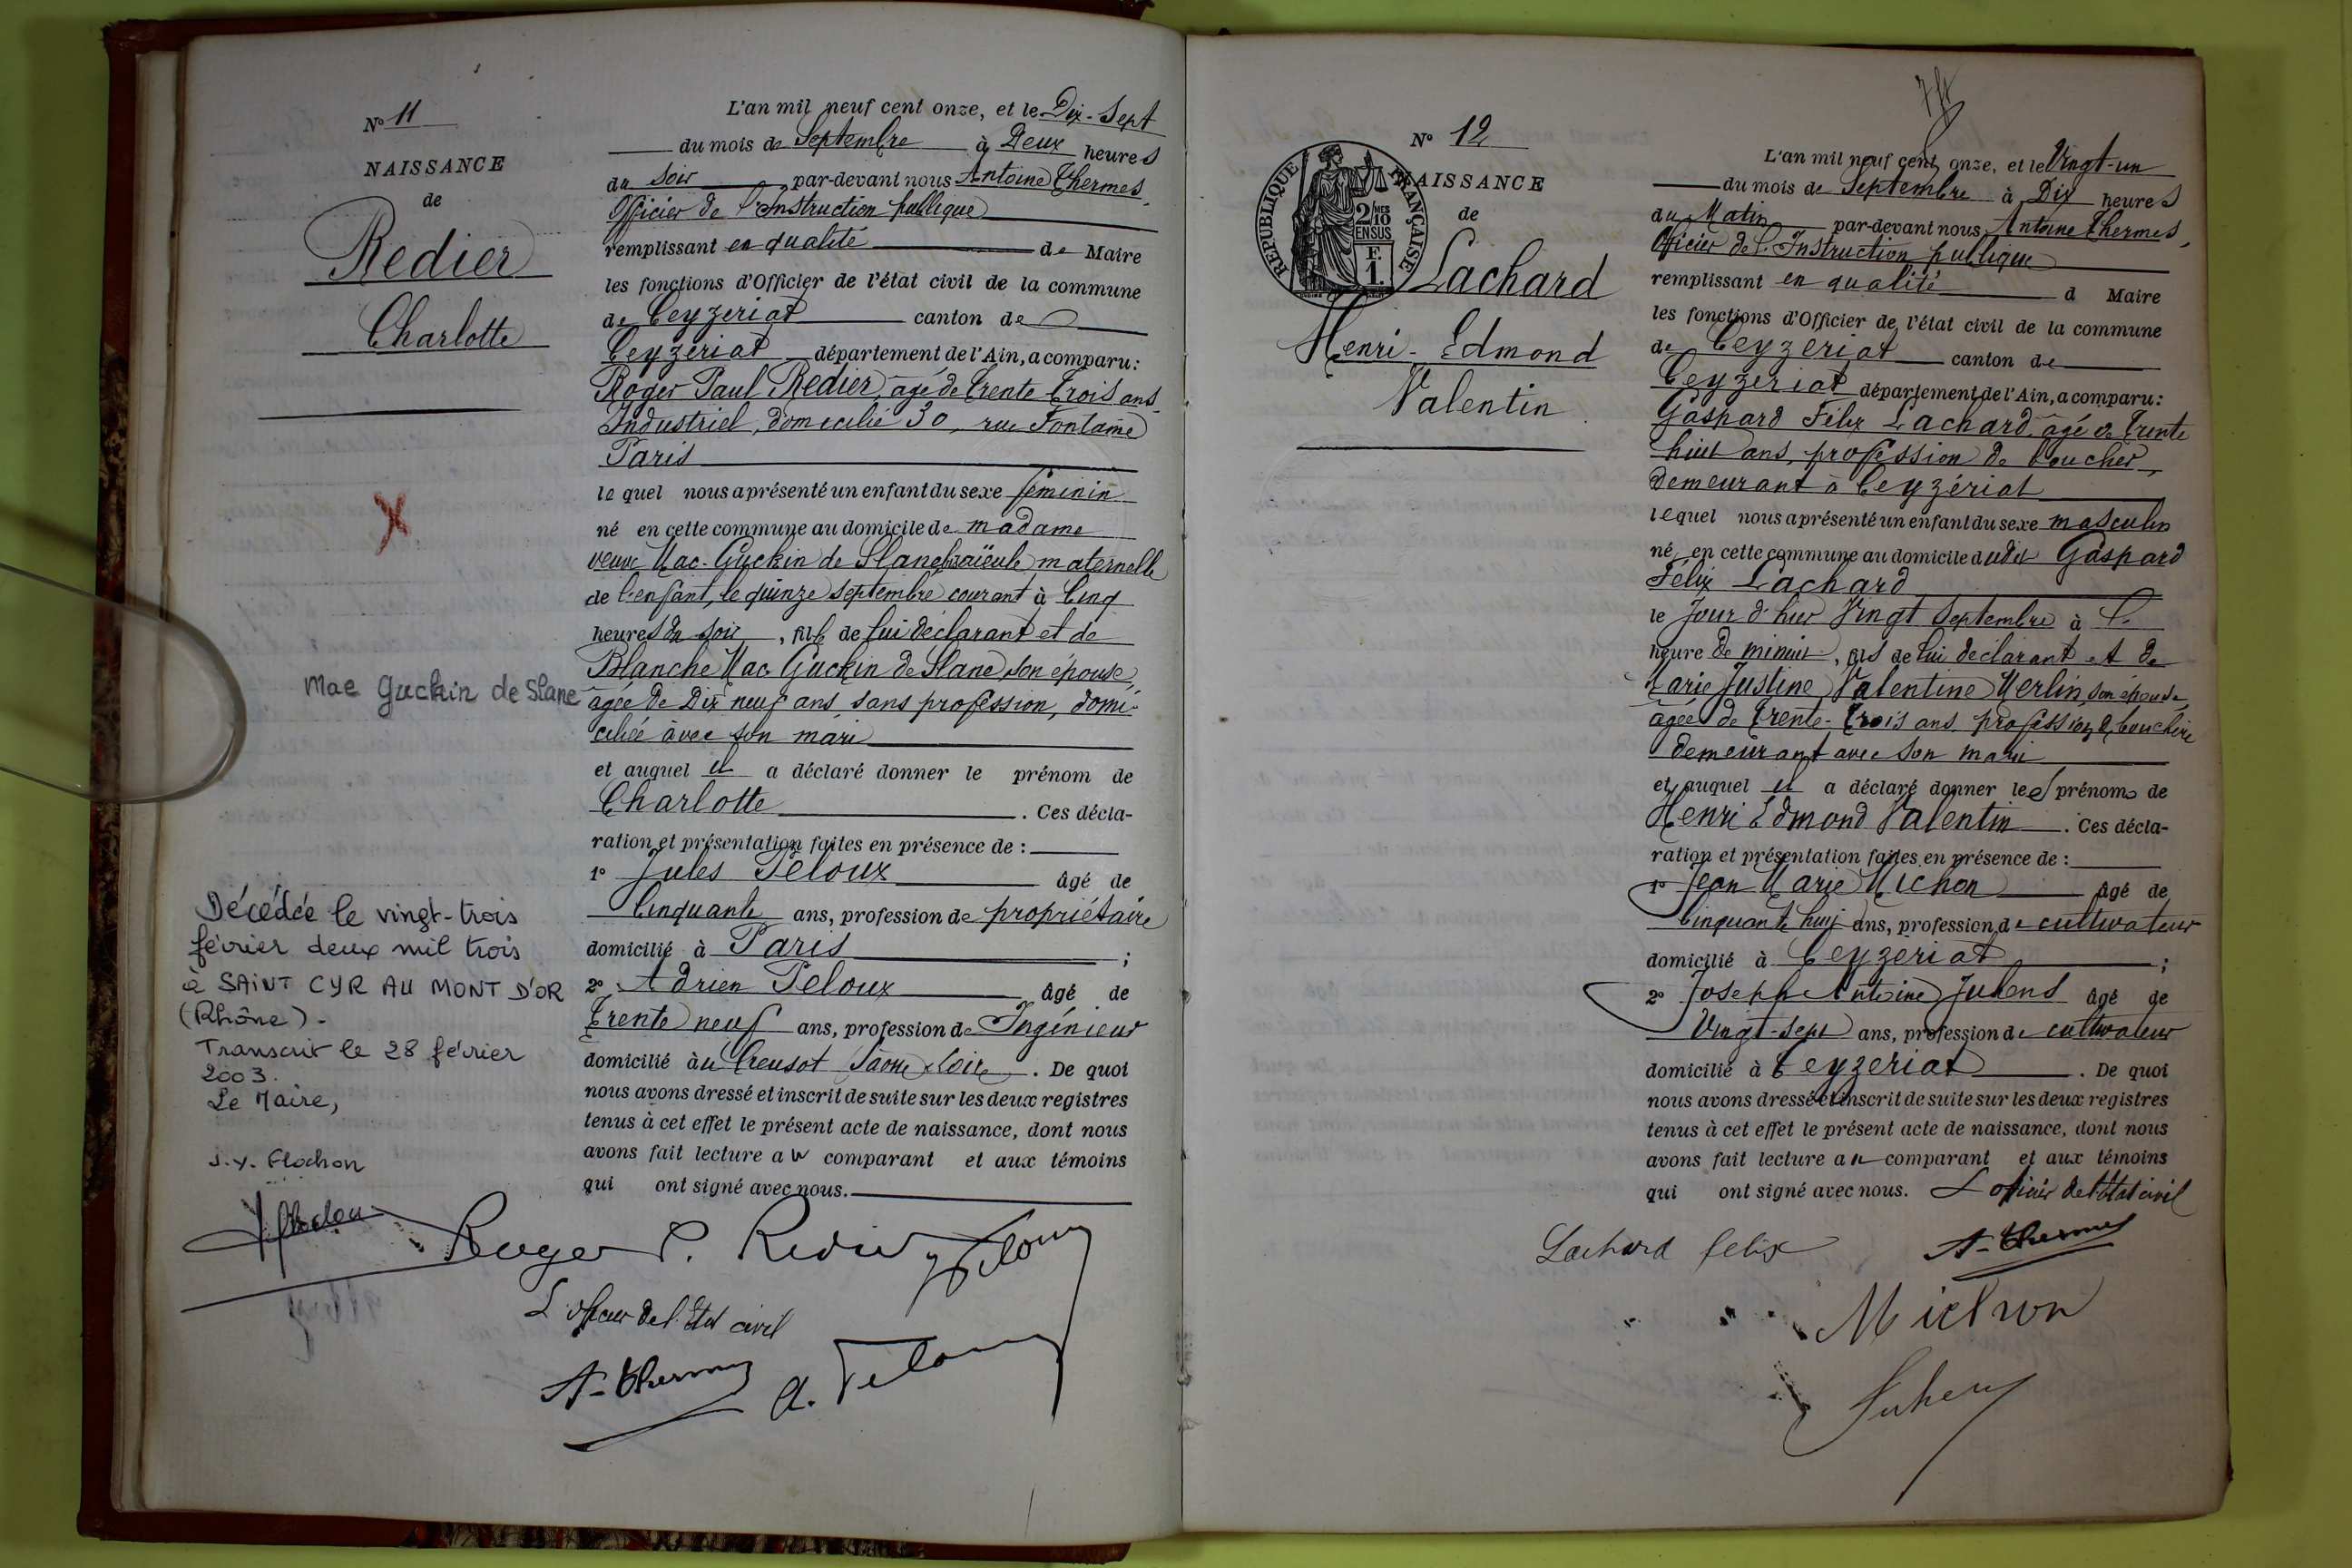 N° 11
NAISSANCE
de
Redier
Charlotte
Mac Guckin de Slane
Décédée le vingt-trois
février deux mil trois
à SAINT CYR AU MONT D'OR
(Rhône).
Transcrit le 28 février
2003.
Le Maire,
J.Y. Flochon
L'an mil neuf cent onze, et le Dix-Sept
du mois de Septembre à Deux heures
du soir par-devant nous Antoine Thermes,
Officier de l'Instruction publique
remplissant en qualité de Maire
les fonctions d'Officier de l'état civil de la commune
de Ceyzeriat canton de
Ceyzeriat département de l'Ain, a comparu:
Roger Paul Redier, âgé de Trente Trois ans
Industriel, domicilié 30, rue Fontaine
Paris
lequel nous a présenté un enfant du sexe féminin
né en cette commune au domicile de madame
veuve Mac-Guckin de Slane bisaïeule maternelle
de l'enfant, le quinze septembre courant à Cinq
heures du soir, fille de lui déclarant et de
Blanche Mac Guckin de Slane son épouse,
âgée de Dix neuf ans, sans profession, domi-
ciliée avec son mari
et auquel il a déclaré donner le prénom de
Charlotte. Ces décla-
ration et présentation faites en présence de :
1° Jules Péloux âgé de
Cinquante ans, profession de propriétaire
domicilié à Paris ;
2° Adrien Peloux âgé de
Trente neuf ans, profession de Ingénieur
domicilié au Creusot Saône & Loire. De quoi
nous avons dressé et inscrit de suite sur les deux registres
tenus à cet effet le présent acte de naissance, dont nous
avons fait lecture au comparant et aux témoins
qui ont signé avec nous.
Roger P. Redier
L'officier de l'Etat civil
A. Thermes
A. Peloux
N° 12
NAISSANCE
de
RÉPUBLIQUE FRANÇAISE
2/10 MES
EN SUS
F.
1.
Lachard
Henri-Edmond
Valentin
L'an mil neuf cent onze, et le Vingt-un
du mois de Septembre à Dix heures
du Matin par-devant nous Antoine Thermes,
Officier de l'Instruction publique
remplissant en qualité d Maire
les fonctions d'Officier de l'état civil de la commune
de Ceyzeriat canton de
Ceyzeriat département de l'Ain, a comparu:
Gaspard Félix Lachard, âgé de Trente
huit ans, profession de boucher,
demeurant à Ceyzériat
lequel nous a présenté un enfant du sexe masculin
né en cette commune au domicile dudit Gaspard
Félix Lachard
le jour d'hier Vingt Septembre à l'
heure de minuit, fils de lui déclarant et de
Marie Justine Valentine Merlin, son épouse,
âgée de Trente-Trois ans profession de bouchère
demeurant avec son mari
et auquel il a déclaré donner les prénoms de
Henri Edmond Valentin. Ces décla-
ration et présentation faites en présence de :
1° Jean Marie Michon âgé de
Cinquante huit ans, profession de cultivateur
domicilié à Ceyzériat ;
2° Joseph Antoine Juhens âgé de
Vingt-sept ans, profession de cultivateur
domicilié à Ceyzeriat. De quoi
nous avons dressé et inscrit de suite sur les deux registres
tenus à cet effet le présent acte de naissance, dont nous
avons fait lecture au comparant et aux témoins
qui ont signé avec nous. L'officier de l'état civil
Lachard felix
A. Thermes
Michon